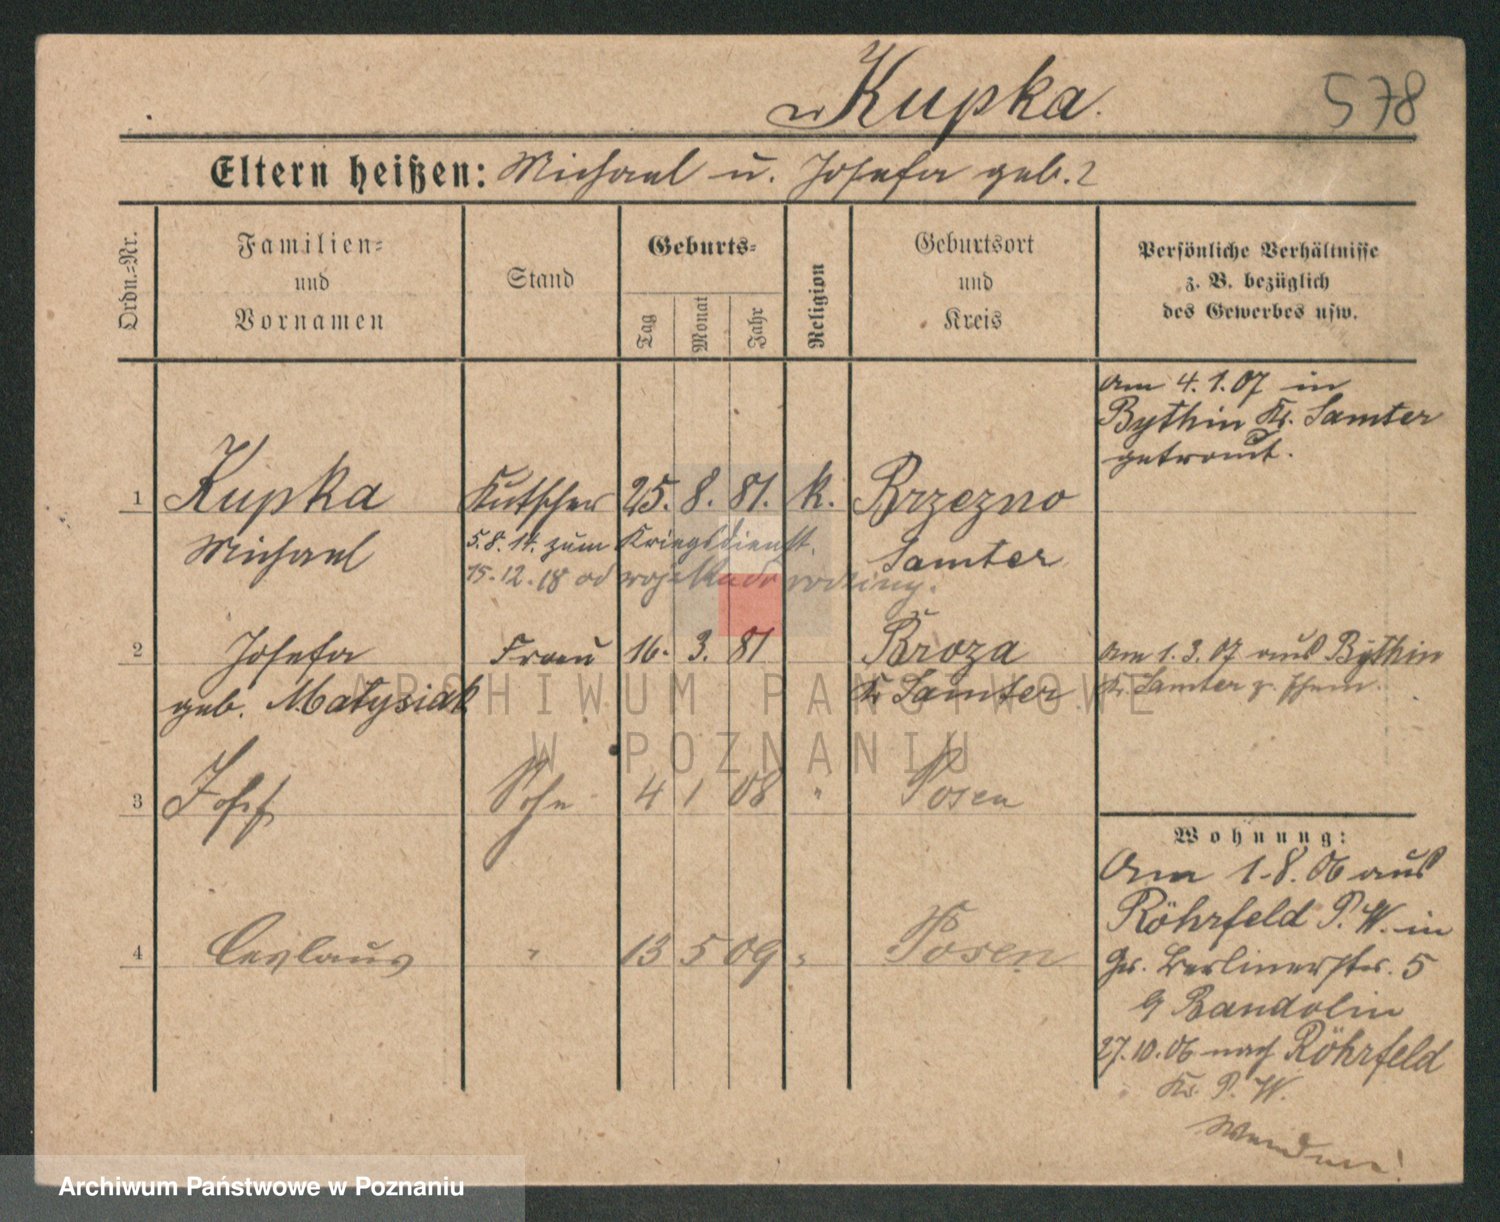 Kupka.
578
Eltern heißen: Michael u. Josefa geb.?
Ordn.-Nr.
Familien- und Vornamen
Stand
Geburts-
Tag
Monat
Jahr
Religion
Geburtsort und Kreis
Persönliche Verhältnisse
z. B. bezüglich
des Gewerbes usw.
am 4.1.07 in
Bythin Kr. Samter
getraut.
1 Kupka Kutscher 25. 8. 81. k. Brzezno
Michael 5.8.14. zum Kriegsdienst. Samter
15.12.18 od wojska do rodziny.
2 Josefa Frau 16. 3. 81 Broza am 1.3.07 aus Bythin
geb. Matysiak Kr Samter Kr. Samter z.
3 Josef Sohn 4 1 08 " Posen
4 Ceslaus " 13 5 09 " Posen
Wohnung:
Am 1.8.06 aus
Röhrfeld P. W. in
Gr. Berlinerstr. 5
b Bandolin
27.10.06 nach Röhrfeld
Kr. P. W.
Wenden!
ARCHIWUM PAŃSTWOWE
W POZNANIU
Archiwum Państwowe w Poznaniu